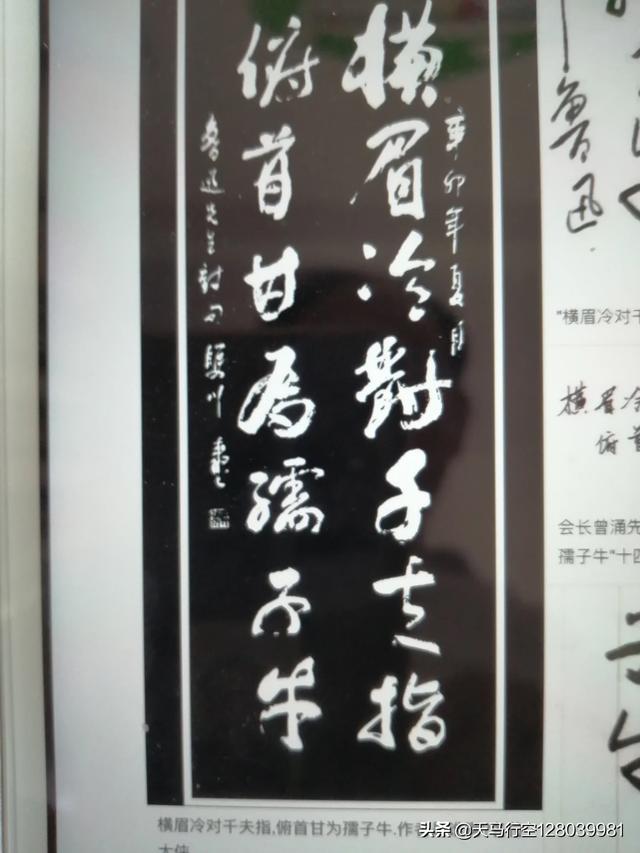 辛卯年夏月
横眉冷對千夫指
俯首甘為孺子牛
魯迅先生
横眉冷对千夫指,俯首甘为孺子牛.作者
魯迅
"横眉冷对千
横眉冷
俯首
会长曾涌先
孺子牛"十四
头条 @天马行空128039981